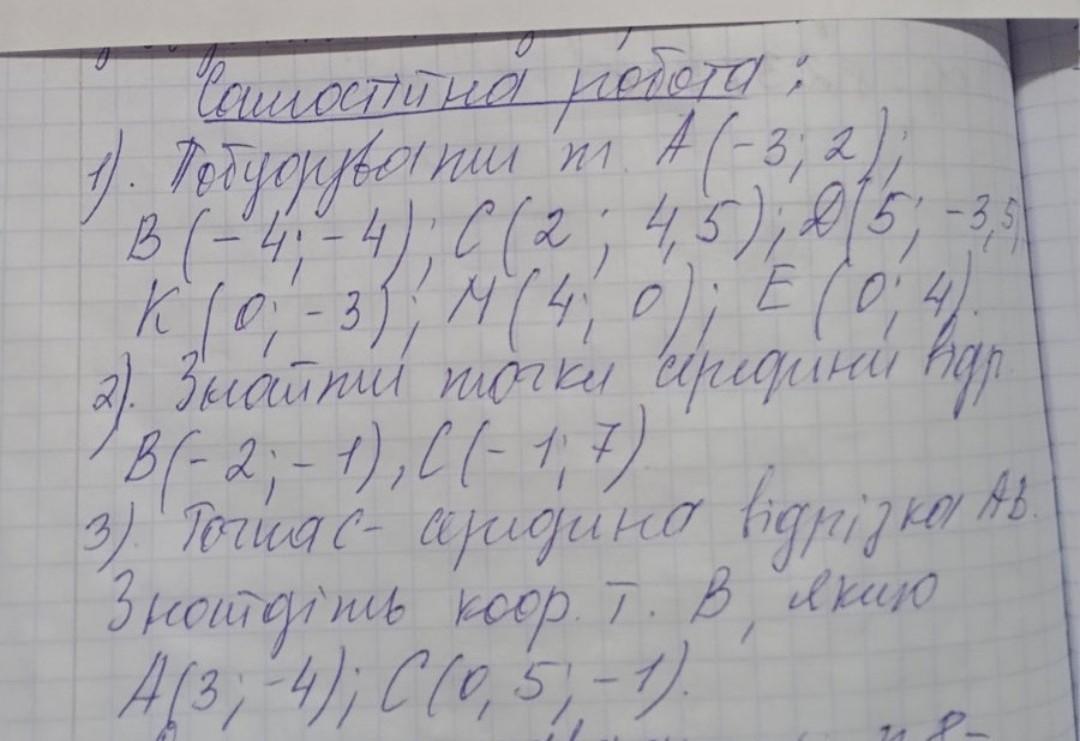 Самостійна робота:
1). Побудувати т. А(-3; 2);
В(-4; -4); С(2; 4,5); D(5; -3,5)
К(0; -3); М(4; 0); Е(0; 4).
2). Знайти точки середини відр.
В(-2; -1), С(-1; 7)
3). Точка С - середина відрізка АВ.
Знайдіть коор. т. В, якщо
А(3; -4); С(0,5; -1).